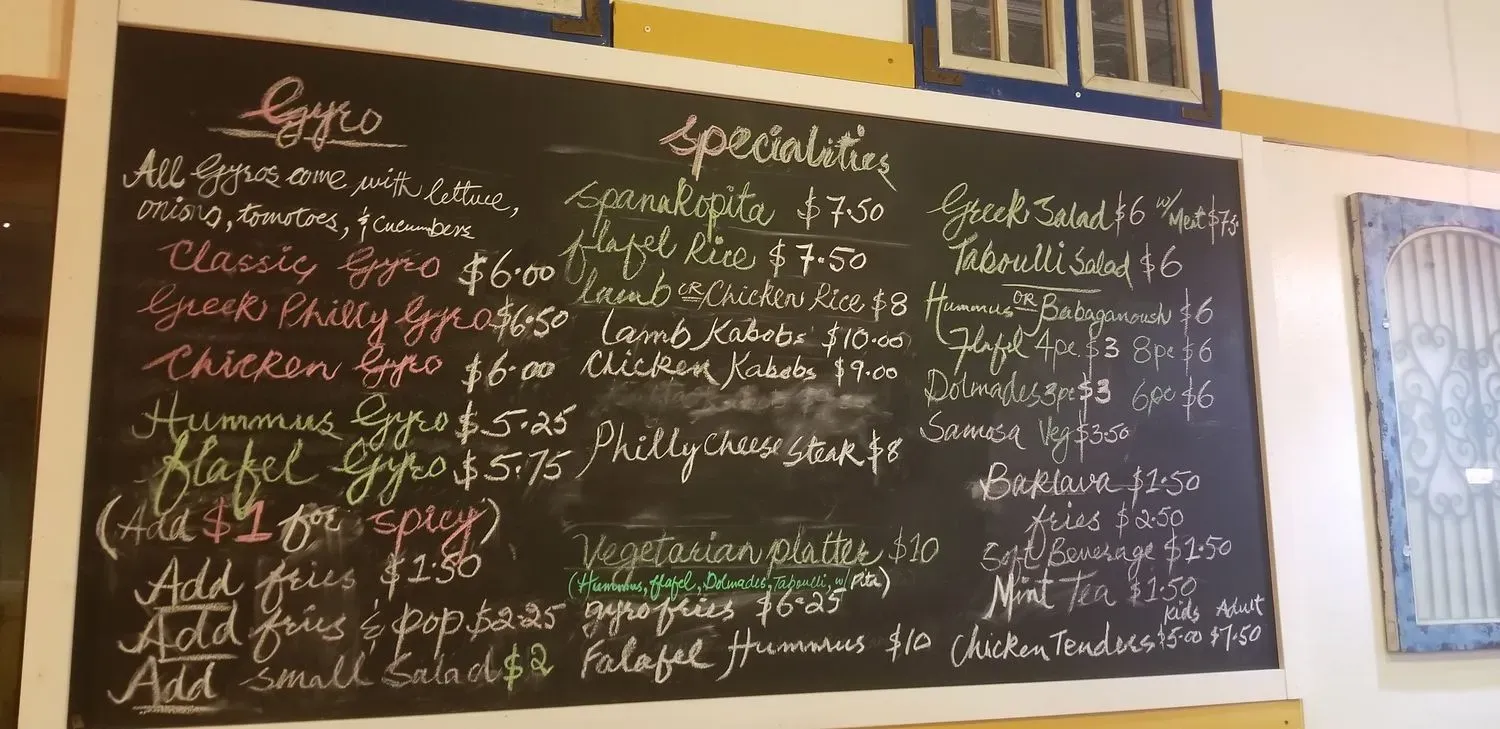 Gyro
All Gyros come with lettuce,
onions, tomotoes, & cucumbers
Classic Gyro $6.00
Greek Philly Gyro $6.50
Chicken Gyro $6.00
Hummus Gyro $5.25
flafel Gyro $5.75
(Add $1 for spicy)
Add fries $1.50
Add fries & pop $2.25
Add small Salad $2
Specialities
Spanakopita $7.50
flafel Rice $7.50
lamb OR Chicken Rice $8
Lamb Kabobs $10.00
Chicken Kabobs $9.00
Philly Cheese Steak $8
Vegetarian platter $10
(Hummus, flafel, Dolmades, Taboulli, w/ Pita)
gyro fries $6.25
Falafel Hummus $10
Greek Salad $6 w/ Meat $7.5
Taboulli Salad $6
Hummus OR Babaganoush $6
Flafel 4pc $3 8pc $6
Dolmades 3pc $3 6pc $6
Samosa Veg $3.50
Baklava $1.50
fries $2.50
Soft Beverage $1.50
Mint Tea $1.50
Kids Adult
Chicken Tenders $5.00 $7.50